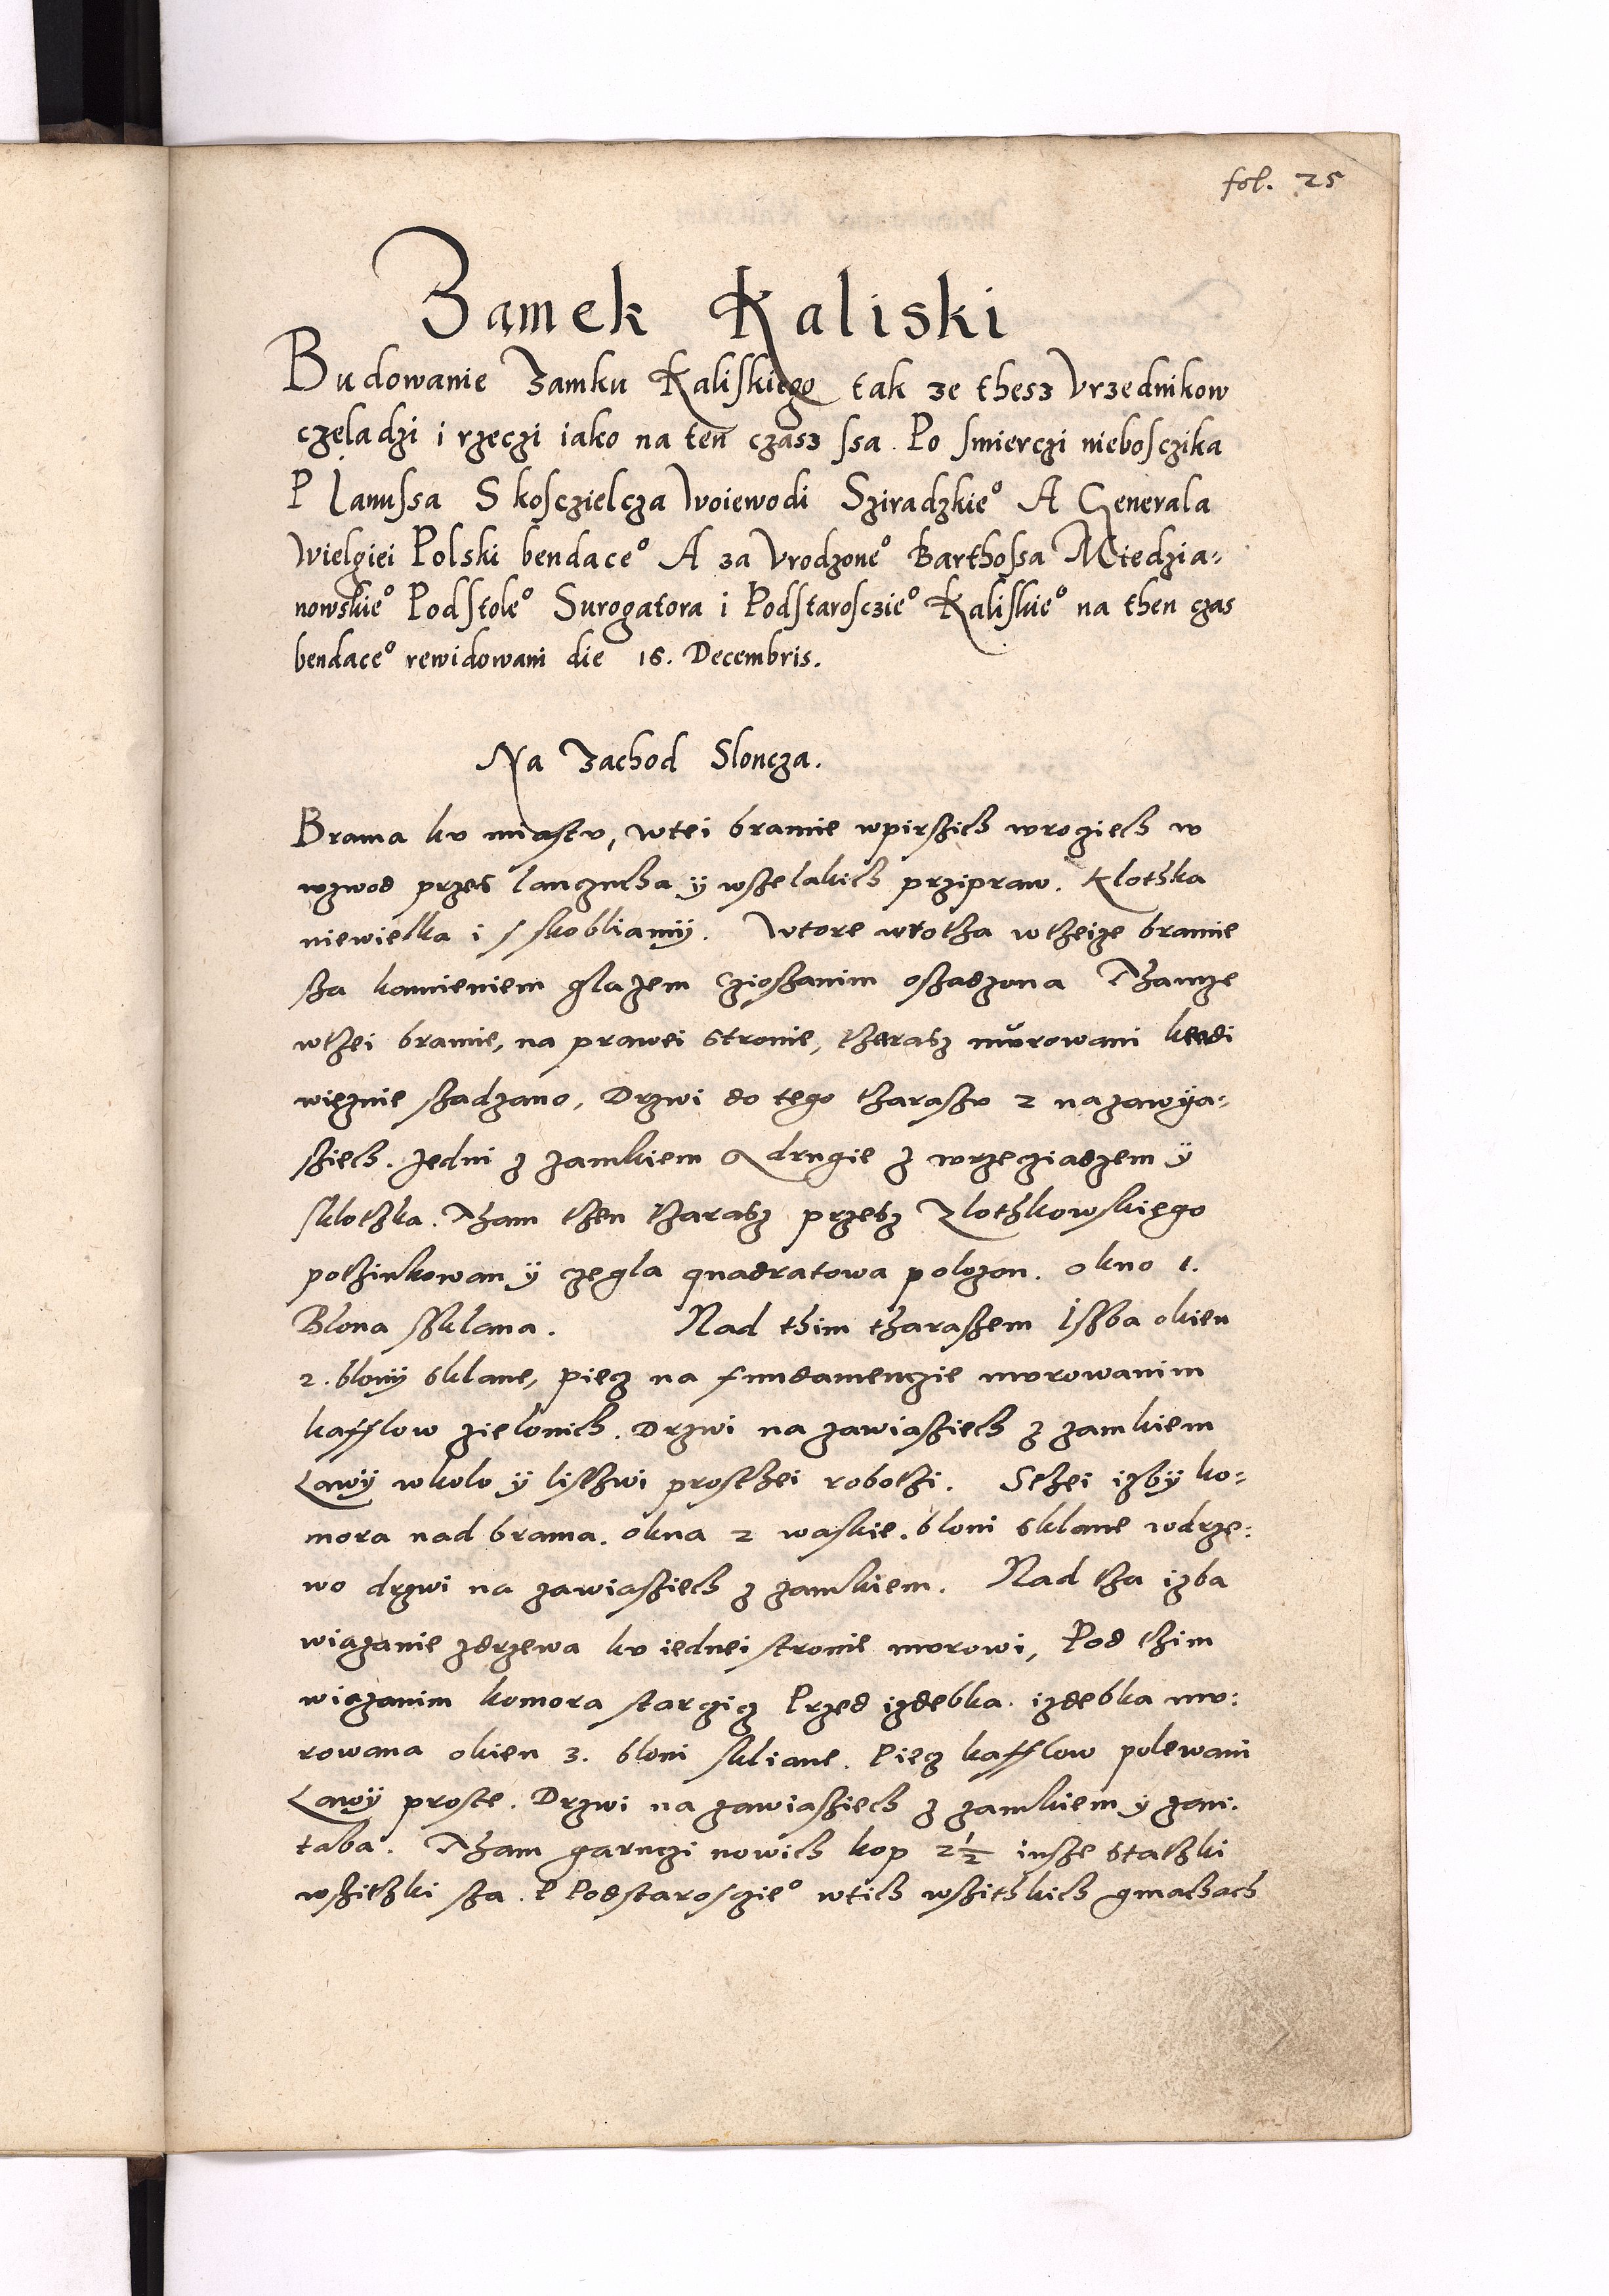 fol. 25
Zamek Kaliski
Budowanie Zamku Kaliskiego tak ze thesz Vrzednikow
czeladzi i rzeczi iako na ten czasz ssa. Po smierczi nieboscika
P Janussa S koscielcza Woiewodi Sziradzkie° A Generala
Wielgiei Polski bendace° A za Vrodzone° Barthossa Miedzia-
nowskie° Podstole° Surogatora i Podstarosczie° Kaliskie° na then czas
bendace° rewidowani die 16. Decembris.
Na Zachod Sloncza.
Brama kv miastv, wtei bramie wpirszich wrociech w
wzwod przes lanczucha ÿ wszelakich przipraw. Klothka
niewielka i s skobliamÿ. Wtore wrotha wtheize bramie
sza kamieniem glazem cziosanim oszadzona Thamze
wthei bramie, na prawei stronie, tharasz mvrowani kedi
więznie szadzano, Drzwi do tego tharaszv 2 nazawÿa-
sziech. Jedni z zamkiem A drugie z wrzecziadzem ÿ
sklothka. Tham then tharasz przesz Zlothkowskięgo
pothinkowan ÿ czegla quadratowa polozon. okno 1.
Blona szklana. Nad thim tharaszem Iszba okien
2. blonÿ sklane, piecz na fundamenczie mvrowanim
kafflow zielonich. Drzwi na zawiasziech z zamkiem
Lawÿ wkolo ÿ listhwi prosthei robothi. Sthei izbÿ ko-
mora nad brama. okna 2 waskie. bloni sklane wdrze-
wo drzwi na zawiasziech z zamkiem. Nad tha izba
wiazanie zdrzewa kv iednei stronie mvrowi, Pod thim
wiazanim komora starczicz Przed izdebka. izdebka mv-
rowana okien 3. bloni skliane. Piecz kafflow polewani
Lawÿ proste. Drzwi na zawiasziech z zamkiem ÿ zani-
taba. Tham garnczi nowich kop 2½ insze stathki
wszithki sza. P Podstaroscie° wtich wszithkich gmachach